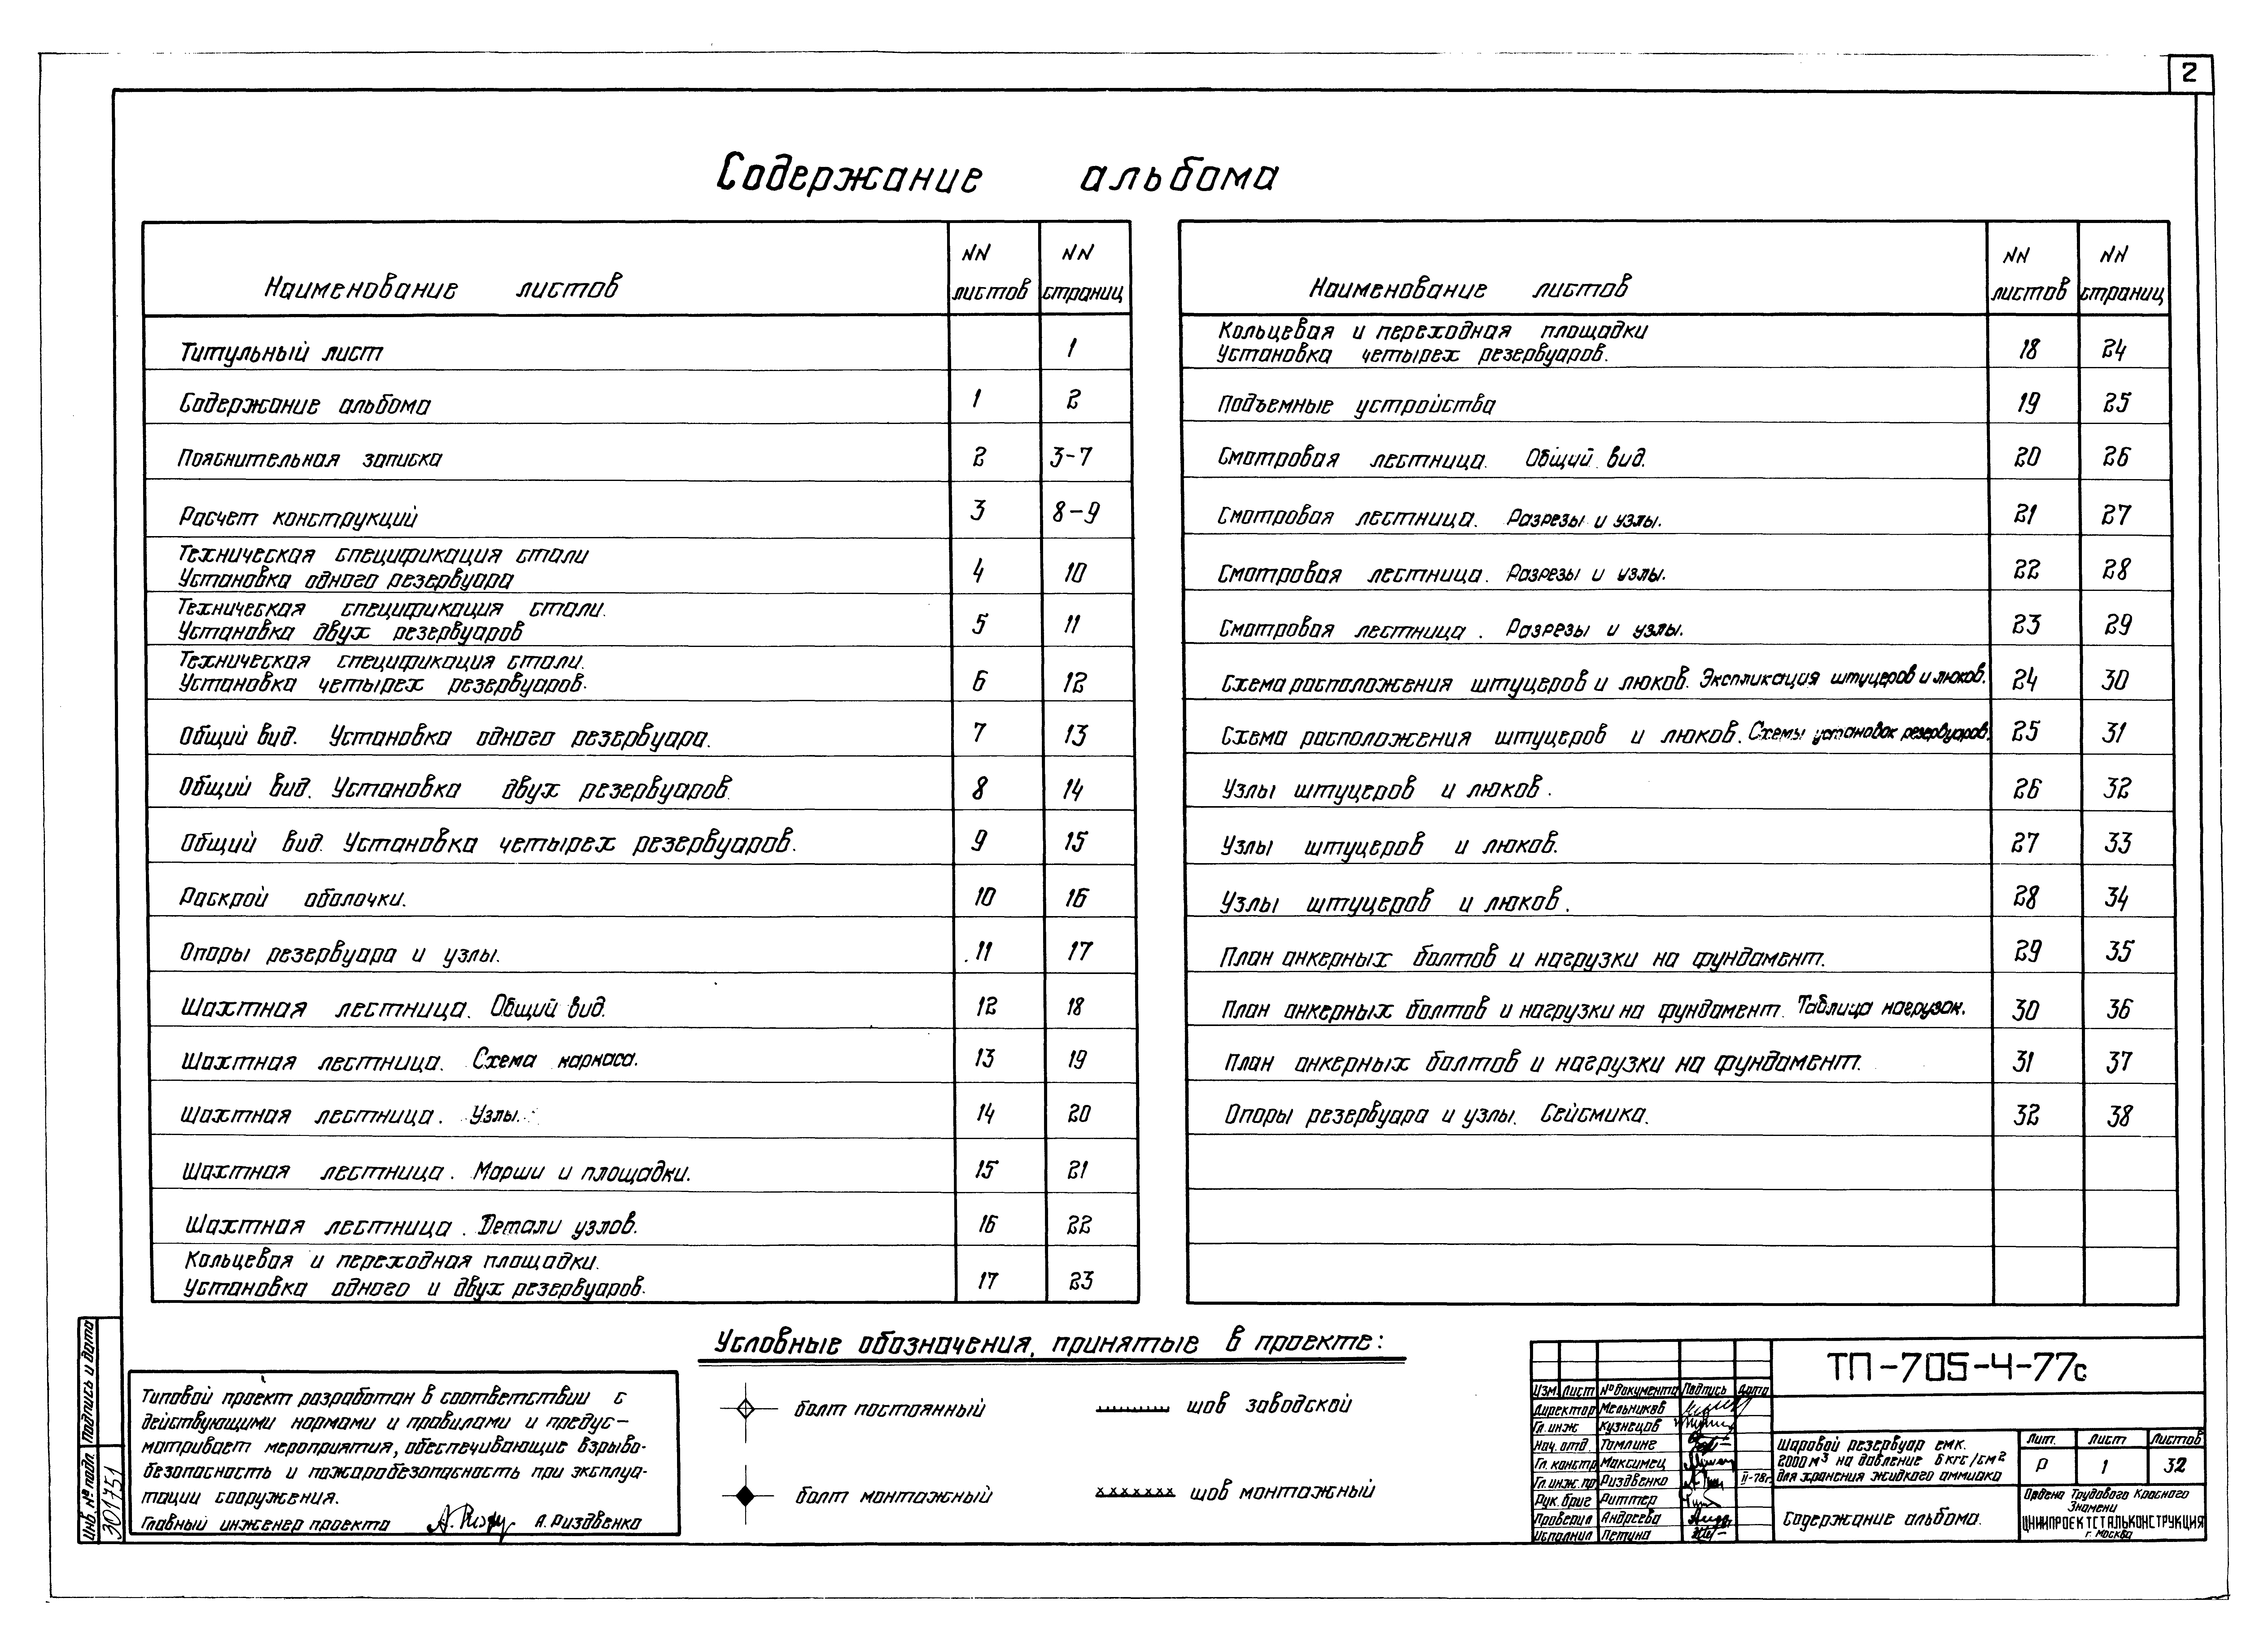 2
Содержание альбома
Наименование листов NN листов NN страниц
Титульный лист 1
Содержание альбома 1 2
Пояснительная записка 2 3-7
Расчет конструкций 3 8-9
Техническая спецификация стали
Установка одного резервуара 4 10
Техническая спецификация стали.
Установка двух резервуаров 5 11
Техническая спецификация стали.
Установка четырех резервуаров. 6 12
Общий вид. Установка одного резервуара. 7 13
Общий вид. Установка двух резервуаров. 8 14
Общий вид. Установка четырех резервуаров. 9 15
Раскрой оболочки. 10 16
Опоры резервуара и узлы. 11 17
Шахтная лестница. Общий вид. 12 18
Шахтная лестница. Схема каркаса. 13 19
Шахтная лестница. Узлы. 14 20
Шахтная лестница. Марши и площадки. 15 21
Шахтная лестница. Детали узлов. 16 22
Кольцевая и переходная площадки.
Установка одного и двух резервуаров. 17 23
Наименование листов NN листов NN страниц
Кольцевая и переходная площадки
Установка четырех резервуаров. 18 24
Подъемные устройства 19 25
Смотровая лестница. Общий вид. 20 26
Смотровая лестница. Разрезы и узлы. 21 27
Смотровая лестница. Разрезы и узлы. 22 28
Смотровая лестница. Разрезы и узлы. 23 29
Схема расположения штуцеров и люков. Экспликация штуцеров и люков. 24 30
Схема расположения штуцеров и люков. Схемы установок резервуаров. 25 31
Узлы штуцеров и люков. 26 32
Узлы штуцеров и люков. 27 33
Узлы штуцеров и люков. 28 34
План анкерных болтов и нагрузки на фундамент. 29 35
План анкерных болтов и нагрузки на фундамент. Таблица нагрузок. 30 36
План анкерных болтов и нагрузки на фундамент. 31 37
Опоры резервуара и узлы. Сейсмика. 32 38
Условные обозначения, принятые в проекте:
болт постоянный
шов заводской
болт монтажный
шов монтажный
Типовой проект разработан в соответствии с
действующими нормами и правилами и предус-
матривает мероприятия, обеспечивающие взрыво-
безопасность и пожаробезопасность при эксплуа-
тации сооружения.
Главный инженер проекта А. Риздвенко
Инв. № подл. Подпись и дата
301751
Изм. Лист № документа Подпись Дата
Директор Мельников
Гл. инж Кузнецов
Нач. отд. Томлинг
Гл. констр Максимец
Гл. инж. пр Риздвенко II-78г.
Рук. бриг Риттер
Проверил Андреева
Исполнил Петина
ТП-705-4-77с
Шаровой резервуар емк.
2000 м³ на давление 6 кгс/см²
для хранения жидкого аммиака
Лит. Лист Листов
Р 1 32
Содержание альбома.
Ордена Трудового Красного
Знамени
ЦНИИПРОЕКТСТАЛЬКОНСТРУКЦИЯ
г. Москва